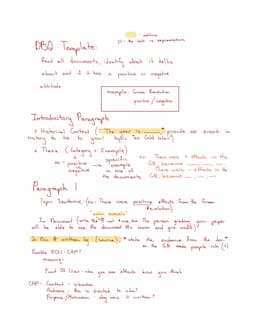 = outline
( ) = the rest is explanation
DBQ Template:
Read all documents, identify what it talks
about and if it has a positive or negative
attitude
example: Green Revolution
positive / negative
Introductory Paragraph
* Historical Context ( "The year is ____," provide an event in
history to tie to your
* Thesis (Category + Example)
ex - positive → specific example in one of the documents
ex: There were + effects in the
GR, because __, __, __
There were - effects in the
GR, because __, __, __
Paragraph 1
Topic Sentence - (ex - There were positive effects from the Green
Revolution)
In Document (write the # not one, two. The person grading your paper
will be able to see the document you
In Doc # written by (source), * state the evidence from the doc *
ex - the GR made people
Possible POV/CAP?
meaning:
Point Of View - who you are affects how you think
CAP - Context - situation
Audience - this is directed to who?
Purpose/Motivation - why was it written?